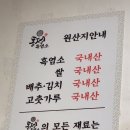 흑염소
원산지안내
흑염소 국내산
쌀 국내산
배추·김치 국내산
고춧가루 국내산
의 모든 재료는